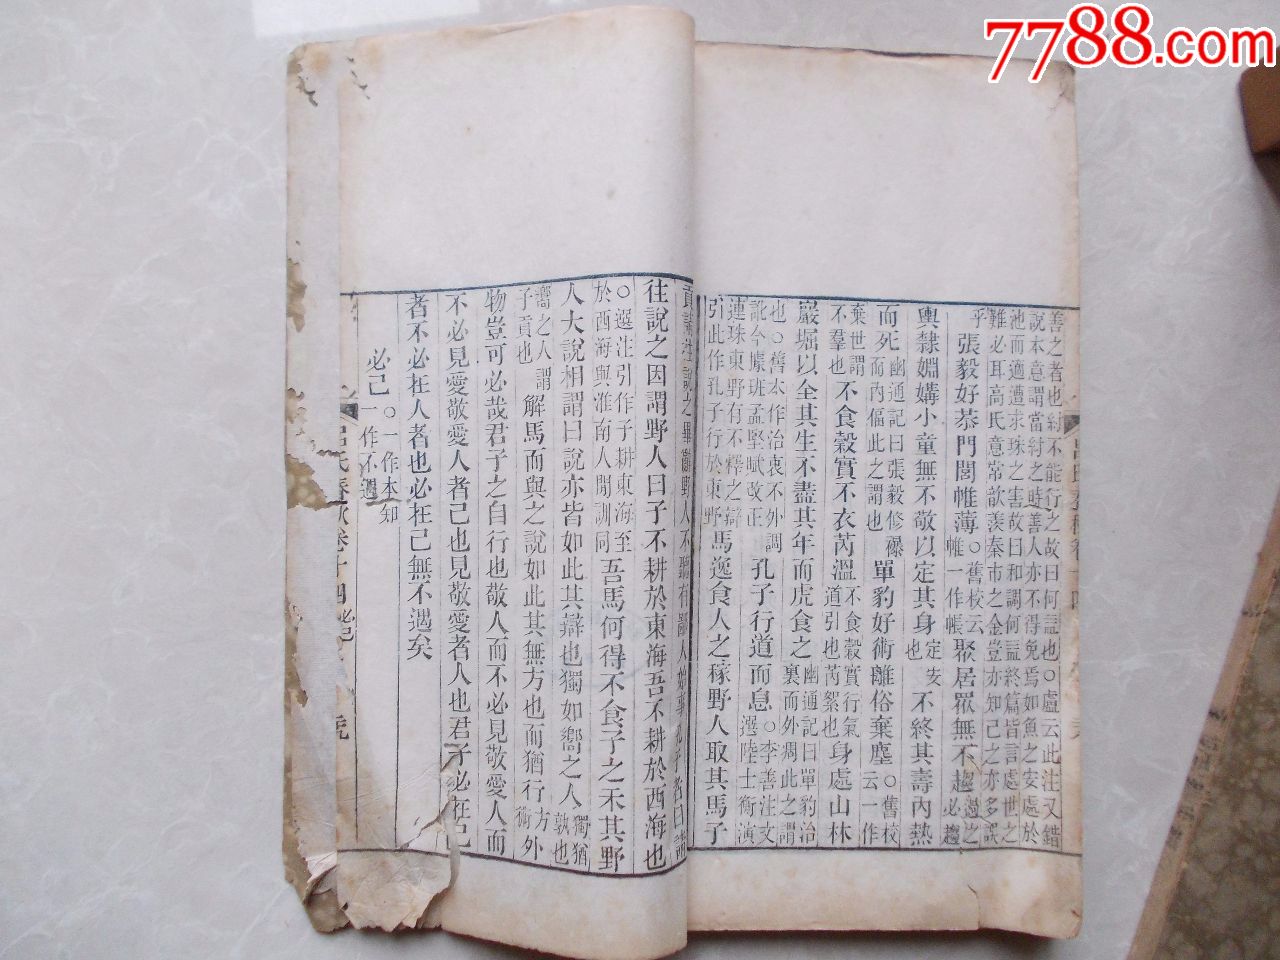 善之者也紂不能行之故曰何益也○盧云此注又錯
說本意謂當紂之時善人亦不得免焉如魚之安處於
池而適遭求珠之害故曰和調何益終篇皆言處世之
難必耳高氏意常歆羨秦市之金豈亦知己之亦多誤
乎張毅好恭門閭帷薄○舊校云帷一作帳聚居眾無不趨過之必趨
輿隸婣媾小童無不敬以定其身安定也不終其壽內熱
而死幽通記曰張毅修襮而內偪此之謂也單豹好術離俗棄塵○舊校云一作
棄世謂不羣也不食穀實不衣芮溫不食穀實行氣道引也芮絮也身處山林
巖堀以全其生不盡其年而虎食之幽通記曰單豹治裏而外凋此之謂
也○舊本作治衷不外調訛今據班孟堅賦改正孔子行道而息○李善注文選陸士衡演
連珠東野有不釋之辯引此作孔子行於東野馬逸食人之稼野人取其馬子
貢請往說之畢辭野人不聽有鄙人始事孔子者曰請
往說之因謂野人曰子不耕於東海吾不耕於西海也
○選注引作子耕東海至於西海與淮南人閒訓同吾馬何得不食子之禾其野
人大說相謂曰說亦皆如此其辯也獨如嚮之人獨猶孰也
嚮之人謂子貢也解馬而與之說如此其無方也而猶行方術外
物豈可必哉君子之自行也敬人而不必見敬愛人而
不必見愛敬愛人者己也見敬愛者人也君子必在己
者不必在人者也必在己無不遇矣
必己○一作本知一作不遇
呂氏春秋卷十四 必己
7788.com